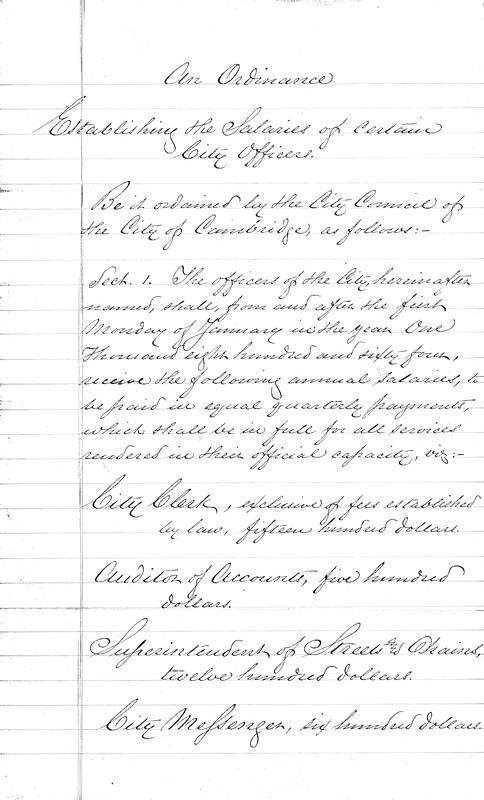 An Ordinance
Establishing the Salaries of certain
City Officers.
Be it ordained by the City Council of
the City of Cambridge, as follows:-
Sect. 1. The officers of the City, hereinafter
named, shall, from and after the first
Monday of January in the year One
thousand eight hundred and sixty four,
receive the following annual salaries, to
be paid in equal quarterly payments,
which shall be in full for all services
rendered in their official capacity, viz:-
City Clerk, exclusive of fees established
by law, fifteen hundred dollars.
Auditor of Accounts, five hundred
dollars.
Superintendent of Streets &c Drains,
twelve hundred dollars.
City Messenger, six hundred dollars.